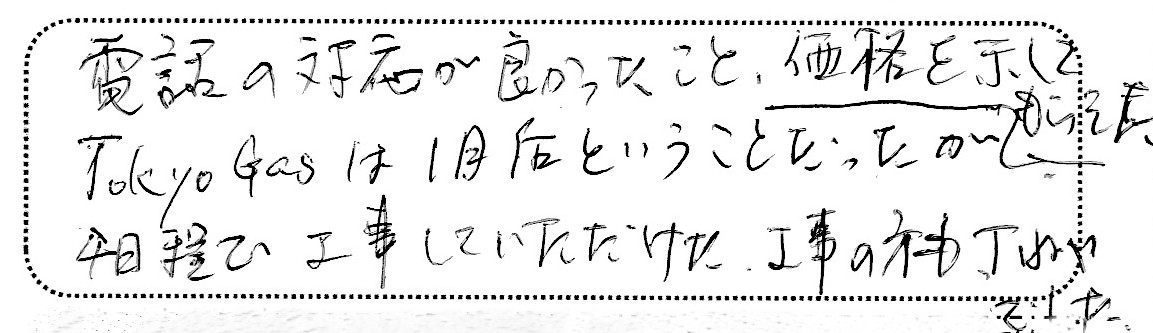 電話の対応が良かったこと、価格を示して
もらえた
Tokyo Gasは1月后ということだったが
4日程で工事していただけた、工事の方も丁ねい
でした